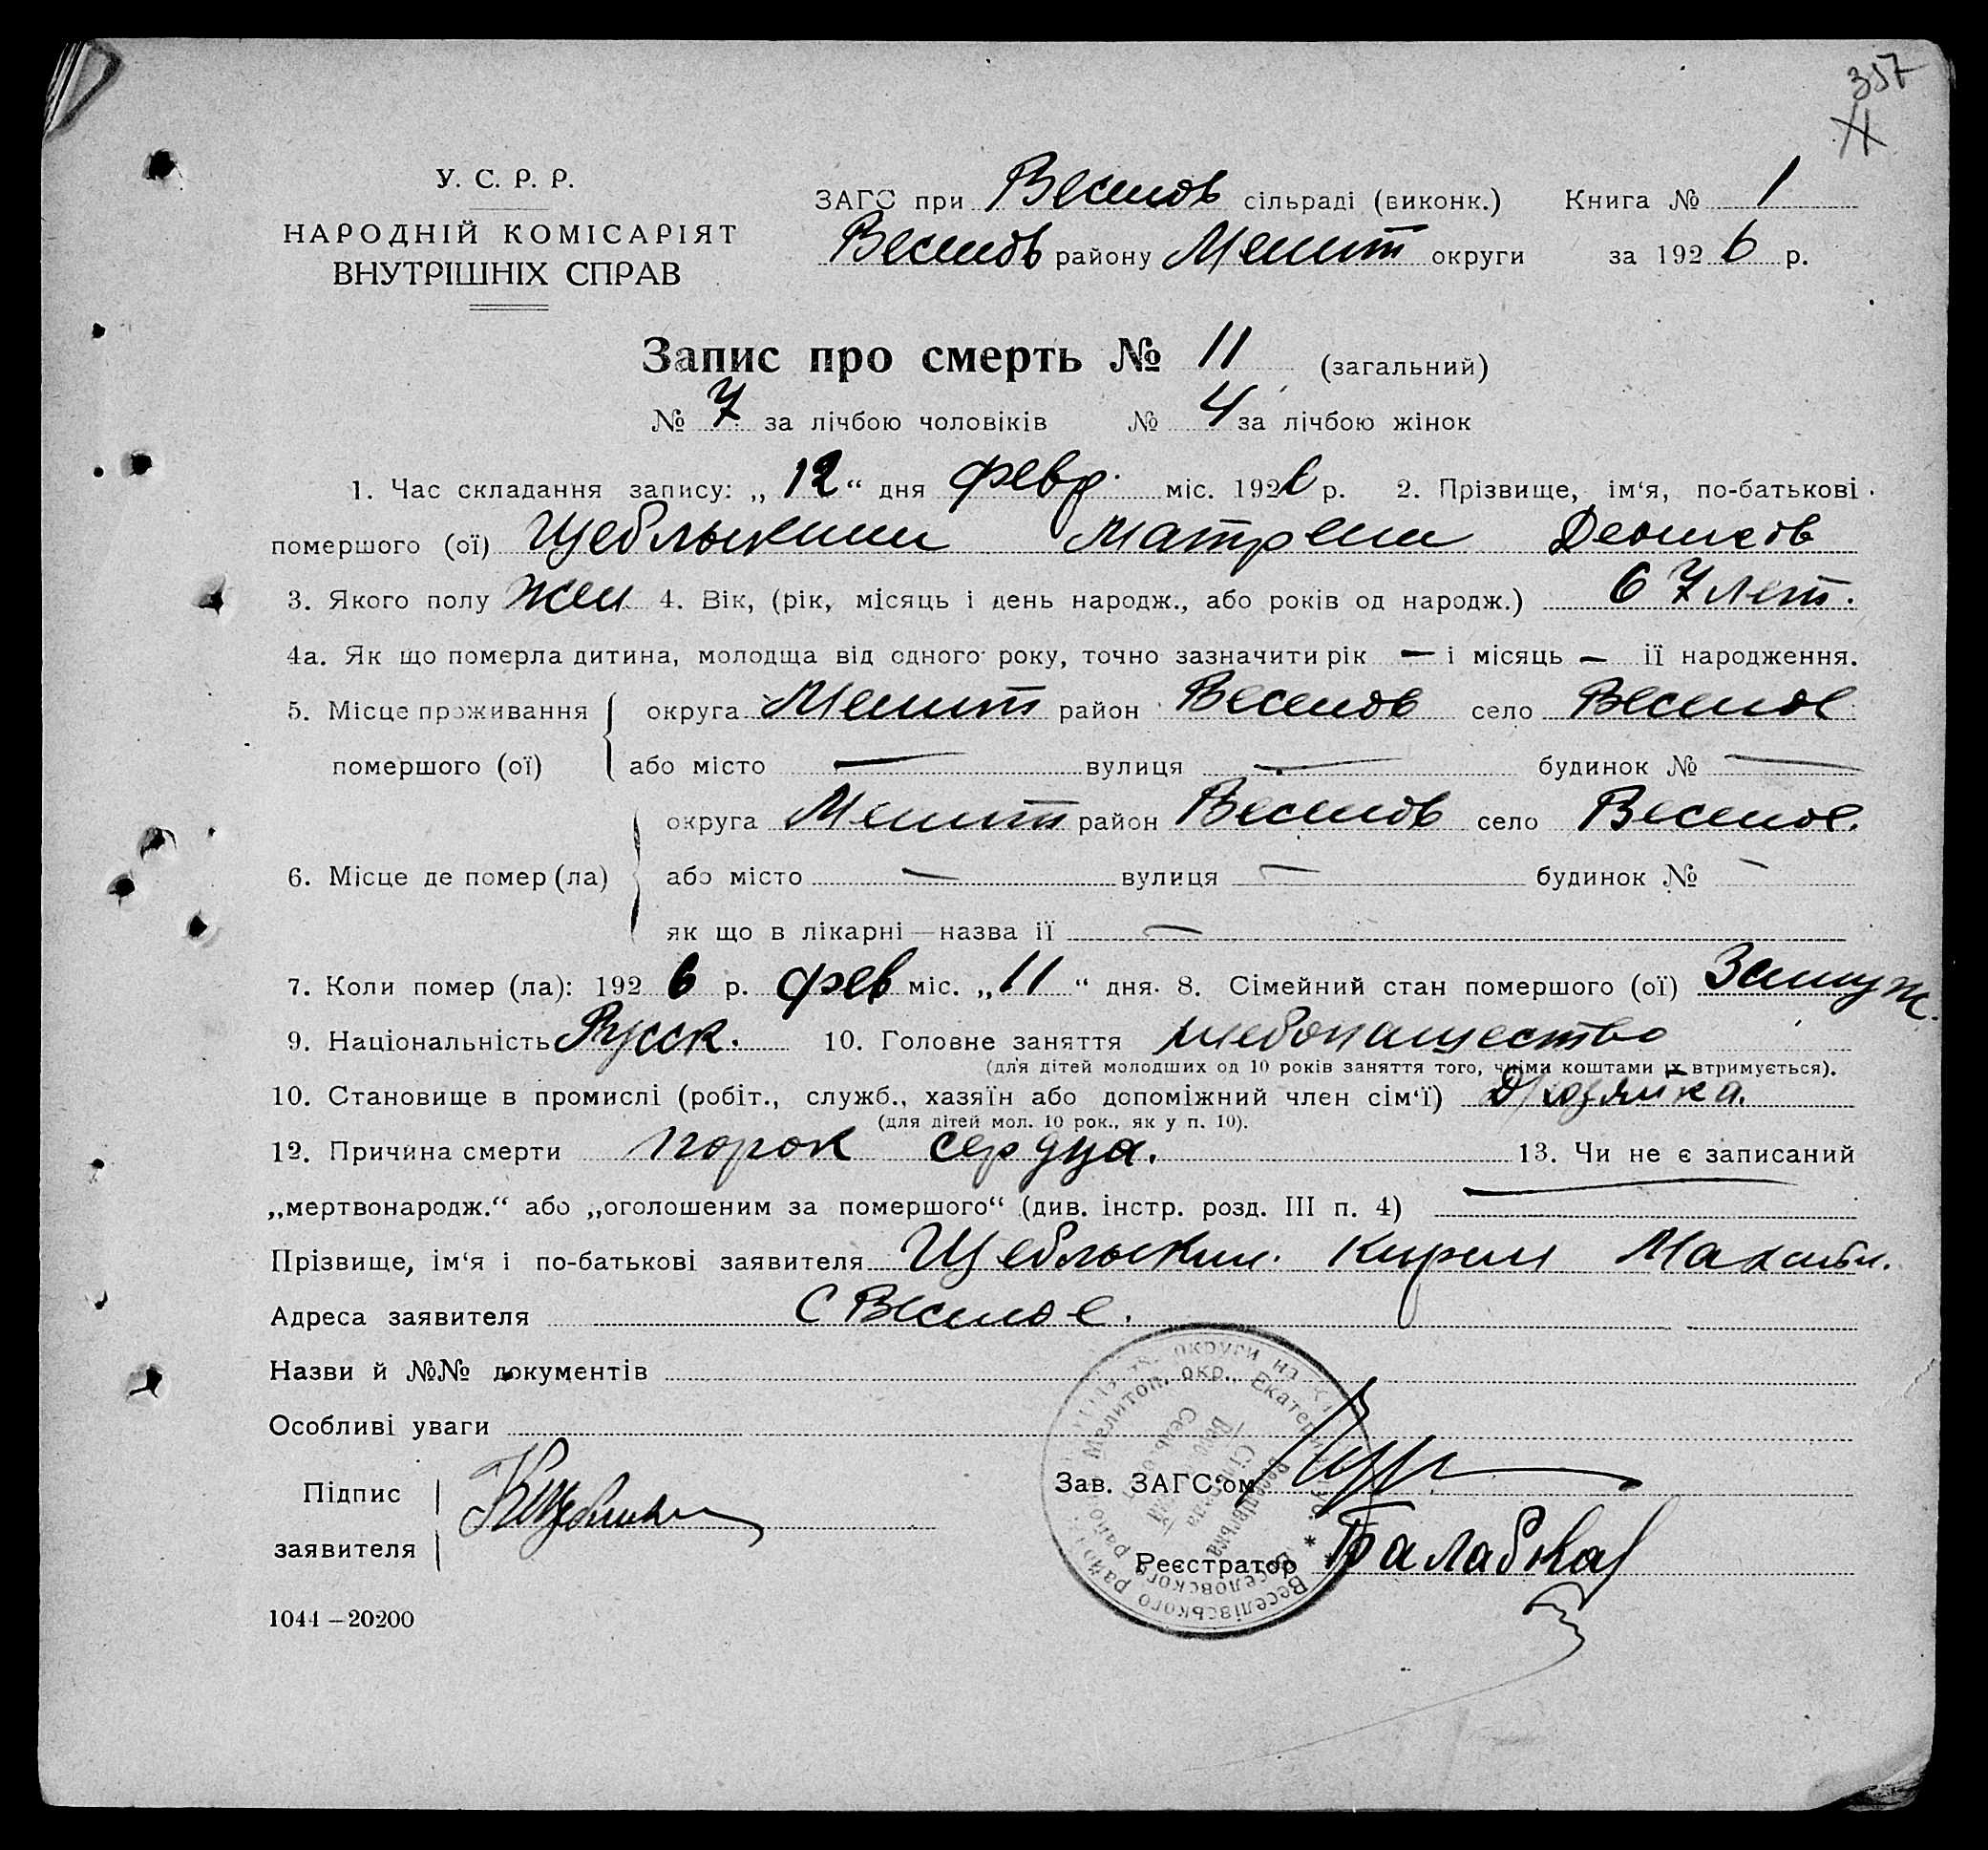 357
У. С. Р. Р.
НАРОДНІЙ КОМІСАРІЯТ
ВНУТРІШНІХ СПРАВ
ЗАГС при Веселов сільраді (виконк.) Книга № 1
Веселов району Мелит округи за 1926 р.
Запис про смерть № 11 (загальний)
№ 7 за лічбою чоловіків № 4 за лічбою жінок
1. Час складання запису: „12“ дня февр. міс. 1926 р. 2. Прізвище, ім‘я, по-батькові
помершого (ої) Щеблыкина Матрена Денисов
3. Якого полу жен 4. Вік, (рік, місяць і день народж., або років од народж.) 67 лет.
4а. Як що померла дитина, молодща від одного року, точно зазначити рік — і місяць — її народження.
5. Місце проживання округа Мелит район Веселов село Веселое
помершого (ої) або місто — вулиця — будинок № —
округа Мелит район Веселов село Веселое.
6. Місце де помер (ла) або місто — вулиця — будинок № —
як що в лікарні—назва її —
7. Коли помер (ла): 1926 р. фев міс. „11“ дня. 8. Сімейний стан помершого (ої) Замуж.
9. Національність Русск. 10. Головне заняття хлебопашество
(для дітей молодших од 10 років заняття того, чиїми коштами їх втримується).
10. Становище в промислі (робіт., служб., хазяїн або допоміжний член сім‘ї) хозяйка.
(для дітей мол. 10 рок., як у п. 10).
12. Причина смерти порок сердца. 13. Чи не є записаний
„мертвонародж.“ або „оголошеним за помершого“ (див. інстр. розд. III п. 4) —
Прізвище, ім‘я і по-батькові заявителя Щеблыкин. Кирил
Адреса заявителя с Веселое.
Назви й №№ документів
Особливі уваги
Підпис
заявителя
Зав. ЗАГС‘ом
Реєстратор
Мелитоп. окр., Екатер
Веселівського району
Веселовского райо
1044—20200